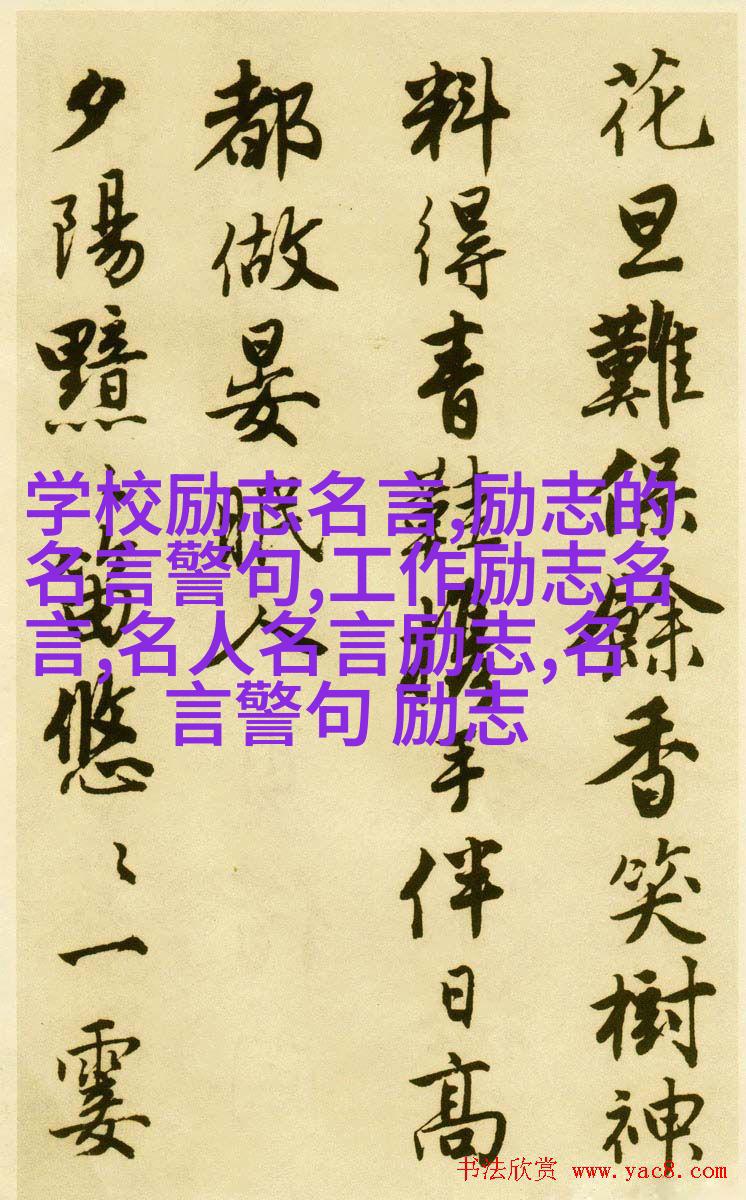 花旦難保餘香笑樹神
料得青鞋攜手伴日高
都做晏眠人
夕陽黯〻笛悠〻一霎
学校励志名言,励志的
名言警句,工作励志名
言,名人名言励志,名
言警句 励志
书法欣赏 www.yac8.com